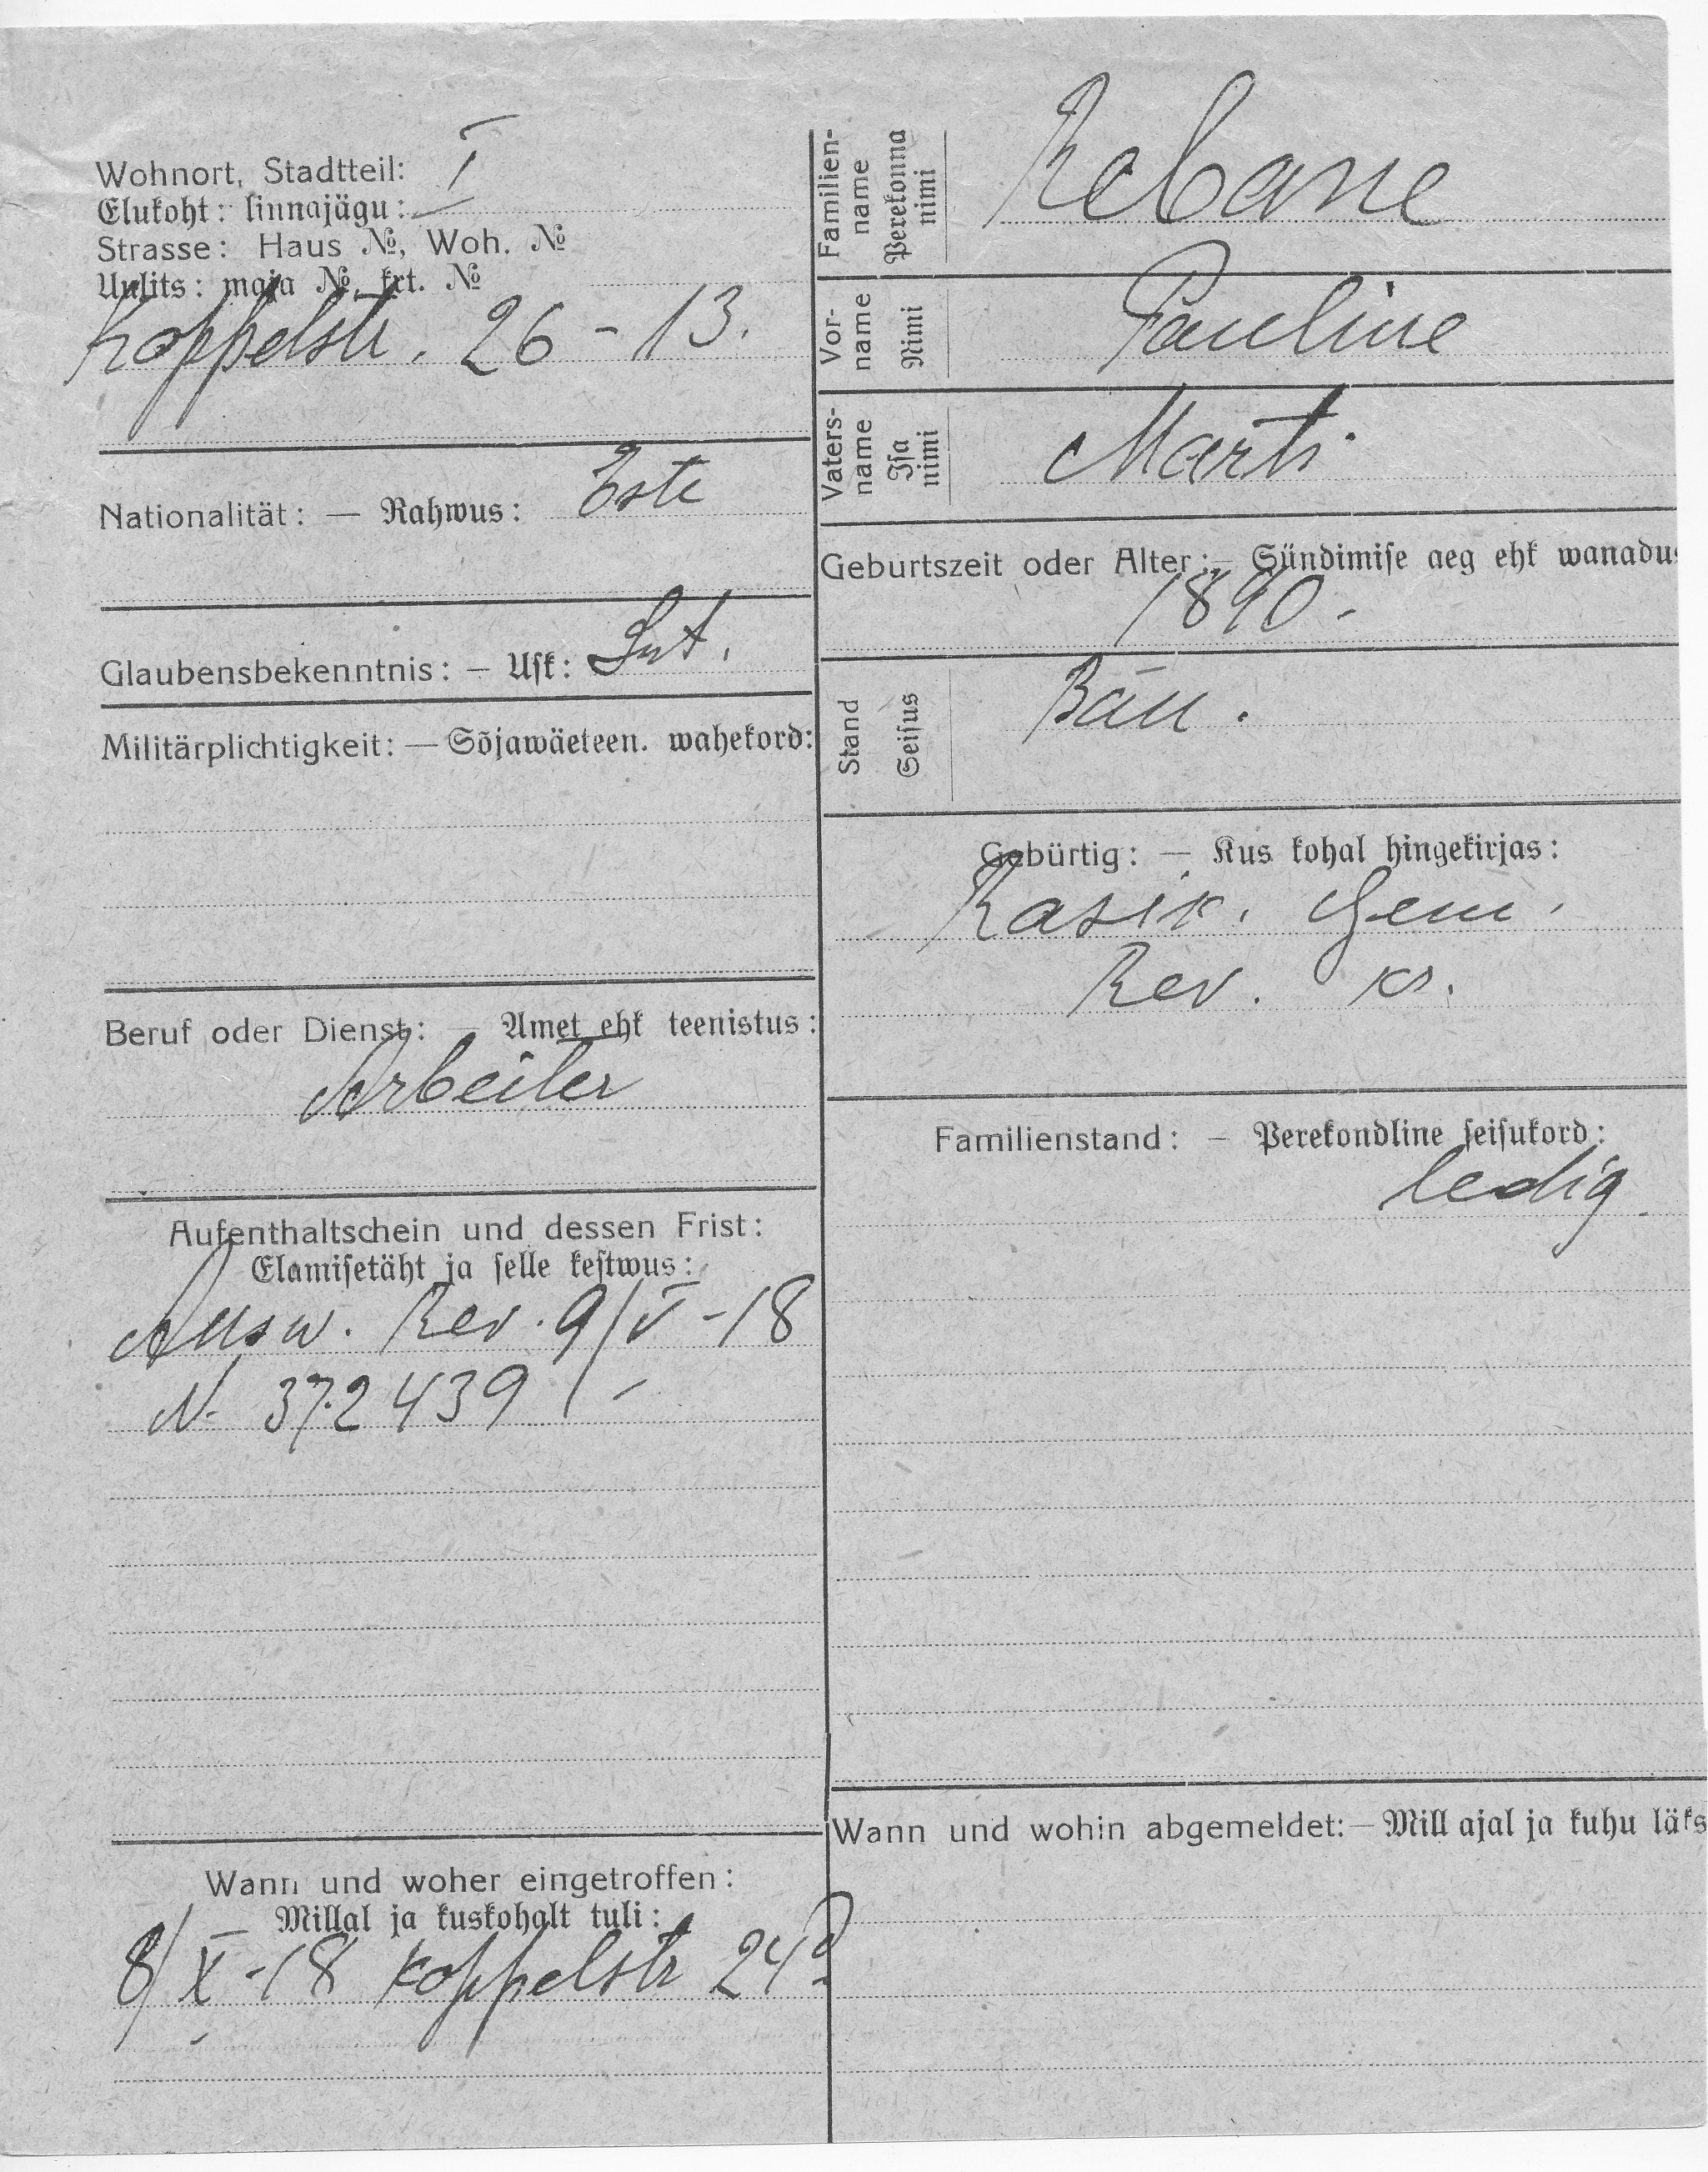 Wohnort, Stadtteil: I
Elukoht: linnajägu:
Strasse: Haus №, Woh. №
Uulits: maja №, krt. №
Koppelstr. 26 - 13.
Nationalität: — Rahwus: Este
Glaubensbekenntnis: — Usk: Lut.
Militärplichtigkeit: — Sõjawäeteen. wahekord:
Beruf oder Dienst: — Amet ehk teenistus:
Arbeiter
Aufenthaltschein und dessen Frist:
Elamisetäht ja selle kestwus:
Ausw. Rev. 9/V -18
N. 372439 / -
Wann und woher eingetroffen:
Millal ja kuskohalt tuli:
8/X -18 Koppelstr 24
Familien-
name
Perekonna
nimi
Rebane
Vor-
name
Nimi
Pauline
Vaters-
name
Isa
nimi
Marti
Geburtszeit oder Alter: — Sündimise aeg ehk wanadus
1890.
Stand
Seisus
Bäu.
Gebürtig: — Kus kohal hingekirjas:
Rasik. Gem.
Rev. Kr.
Familienstand: — Perekondline seisukord:
ledig.
Wann und wohin abgemeldet: — Mill ajal ja kuhu läks